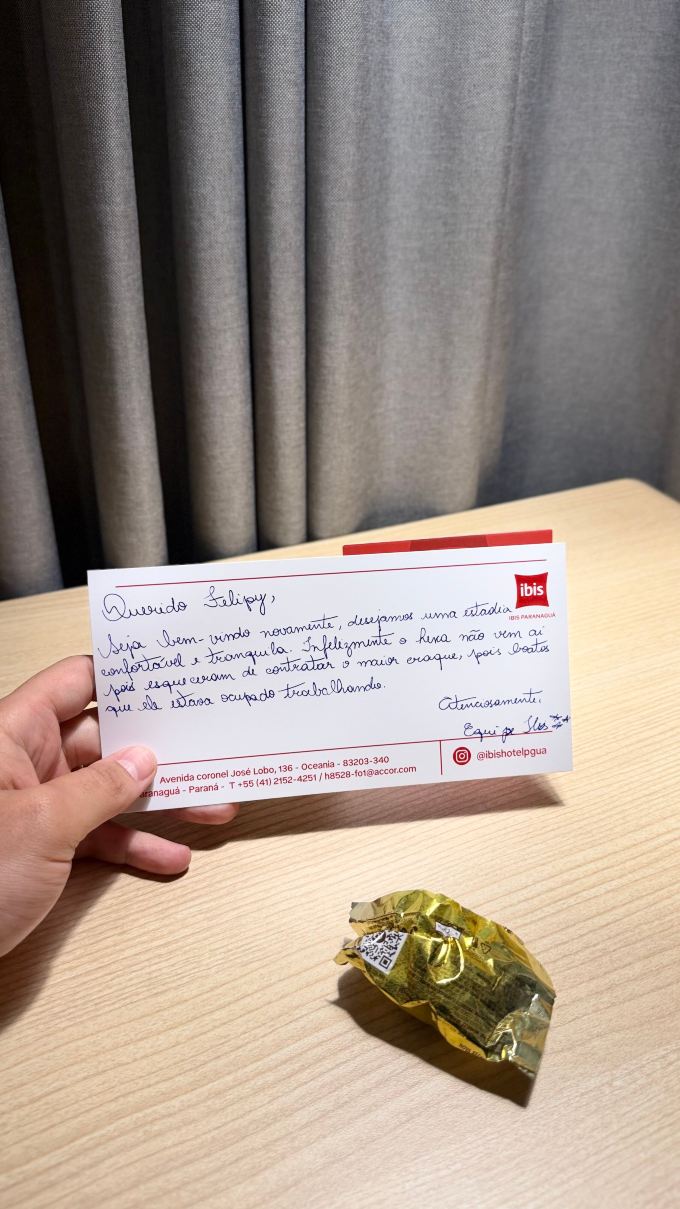 Querido Felipy,
ibis
IBIS PARANAGUÁ
Seja bem-vindo novamente, desejamos uma estadia
confortável e tranquila. Infelizmente o hexa não vem aí
pois esqueceram de contratar o maior craque, pois boatos
que ele estava ocupado trabalhando.
Atenciosamente,
Equipe Ibis
Avenida coronel José Lobo, 136 - Oceania - 83203-340
aranaguá - Paraná - T +55 (41) 2152-4251 / h8528-fo1@accor.com
@ibishotelpgua